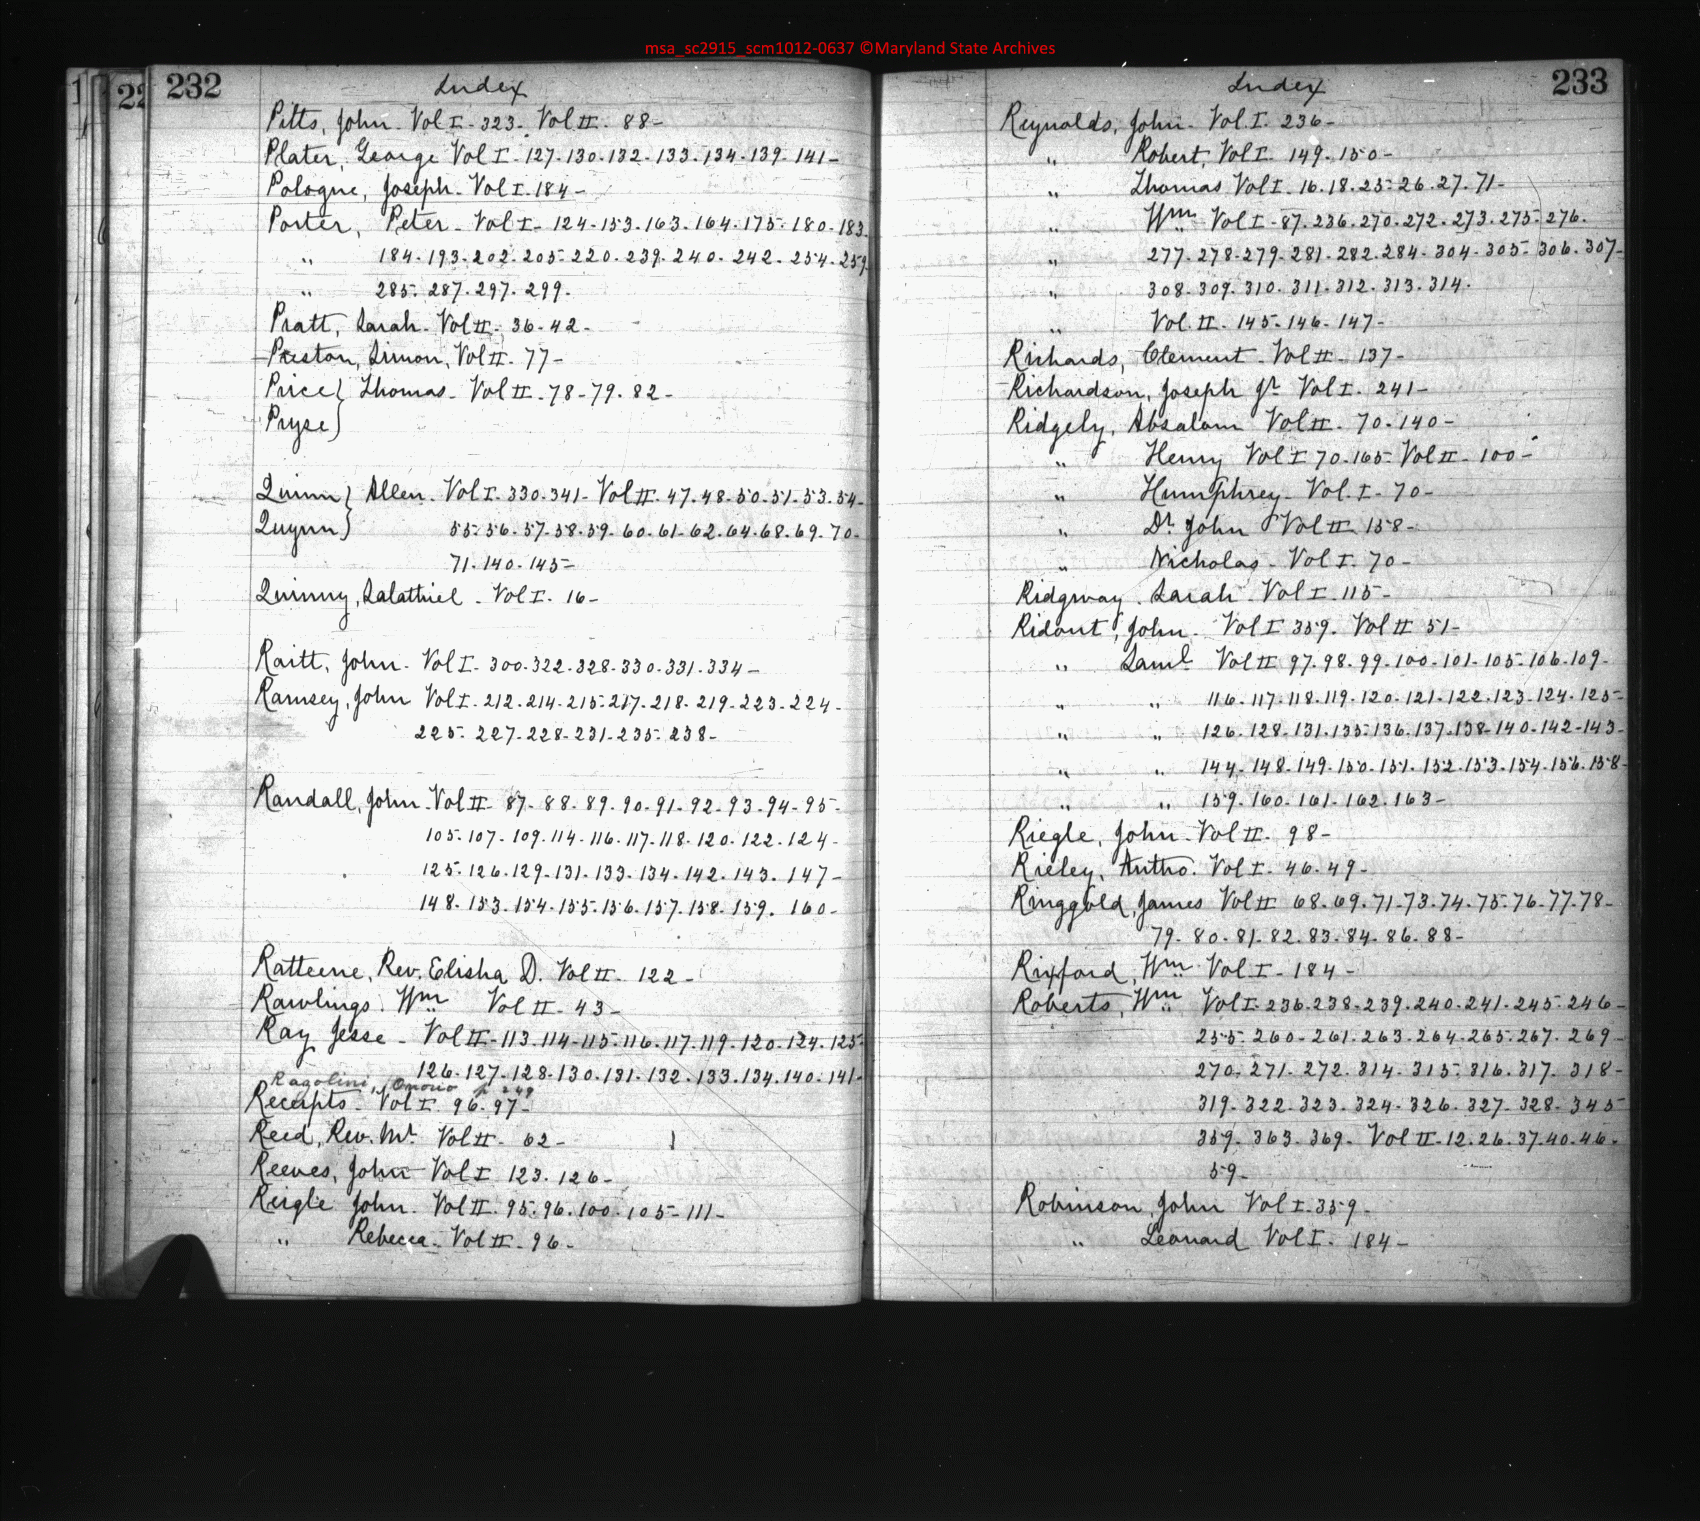 msa_sc2915_scm1012-0637 ©Maryland State Archives
232
Index
Pitts, John - Vol I - 323. Vol II - 88 -
Plater, George Vol I - 127 - 130 - 132 - 133 - 134 - 139 - 141 -
Pologne, Joseph - Vol I. 184 -
Porter, Peter - Vol I - 124 - 153 - 163 - 164 - 175 - 180 - 183.
" 184 - 193 - 202 - 205 - 220 - 239 - 240 - 242 - 254 - 259.
" 285 - 287 - 297 - 299.
Pratt, Sarah - Vol II - 36 - 42 -
Preston, Simon, Vol II - 77 -
Price } Thomas - Vol II - 78 - 79 - 82 -
Pryse }
Quinn } Allen - Vol I - 330 - 341 - Vol II - 47 - 48 - 50 - 51 - 53 - 54 -
Quynn } 55 - 56 - 57 - 58 - 59 - 60 - 61 - 62 - 64 - 68 - 69 - 70 -
71 - 140 - 145 -
Quinny, Salathiel - Vol I - 16 -
Raitt, John - Vol I - 300 - 322 - 328 - 330 - 331 - 334 -
Ramsey, John Vol I - 212 - 214 - 215 - 217 - 218 - 219 - 223 - 224 -
225 - 227 - 228 - 231 - 235 - 238 -
Randall, John - Vol II - 87 - 88 - 89 - 90 - 91 - 92 - 93 - 94 - 95 -
105 - 107 - 109 - 114 - 116 - 117 - 118 - 120 - 122 - 124 -
125 - 126 - 129 - 131 - 133 - 134 - 142 - 143 - 147 -
148 - 153 - 154 - 155 - 156 - 157 - 158 - 159. 160 -
Ratteene, Rev. Elisha D. Vol II - 122 -
Rawlings. Wm Vol II - 43 -
Ray Jesse - Vol II - 113 - 114 - 115 - 116 - 117 - 119 - 120 - 124 - 125 -
126 - 127 - 128 - 130 - 131 - 132 - 133 - 134 - 140 - 141 -
Ragolini, Onorio p. 249
Receipts - Vol I. 96 - 97 -
Reed, Rev. Mr. Vol II - 62 -
Reeves, John Vol I 123. 126 -
Reigle John. Vol II - 95 - 96 - 100 - 105 - 111 -
" Rebecca - Vol II - 96 -
233
Index
Reynolds, John - Vol. I. 236 -
" Robert, Vol I. 149 - 150 -
" Thomas Vol I. 16 - 18 - 25 - 26 - 27 - 71 -
" Wm Vol I - 87 - 236 - 270 - 272 - 273 - 275 - 276.
" 277 - 278 - 279 - 281 - 282 - 284 - 304 - 305 - 306 - 307 -
" 308 - 309 - 310 - 311 - 312 - 313 - 314.
" Vol. II - 145 - 146 - 147 -
Richards, Clement - Vol II - 137 -
Richardson, Joseph Jr. Vol I. 241 -
Ridgely, Absalom Vol II - 70 - 140 -
" Henry Vol I 70 - 165 - Vol II - 100 -
" Humphrey - Vol. I - 70 -
" Dr. John Vol II - 158 -
" Nicholas - Vol I. 70 -
Ridgway. Sarah - Vol I - 115 -
Ridout, John. Vol I 359. Vol II 51 -
" Saml. Vol II 97 - 98 - 99 - 100 - 101 - 105 - 106 - 109 -
" " 116 - 117 - 118 - 119 - 120 - 121 - 122 - 123 - 124 - 125 -
" " 126 - 128 - 131 - 135 - 136 - 137 - 138 - 140 - 142 - 143 -
" " 144 - 148 - 149 - 150 - 151 - 152 - 153 - 154 - 156 - 158 -
" " 159 - 160 - 161 - 162 - 163 -
Riegle, John - Vol II - 98 -
Rieley, Antho. Vol I - 46 - 49 -
Ringgold, James Vol II 68 - 69 - 71 - 73 - 74 - 75 - 76 - 77 - 78 -
79 - 80 - 81 - 82 - 83 - 84 - 86 - 88 -
Rixford, Wm Vol I - 184 -
Roberts, Wm Vol I - 236 - 238 - 239 - 240 - 241 - 245 - 246 -
255 - 260 - 261 - 263 - 264 - 265 - 267 - 269 -
270 - 271 - 272 - 314 - 315 - 316 - 317 - 318 -
319 - 322 - 323 - 324 - 326 - 327 - 328 - 345
359 - 363 - 369 - Vol II - 12 - 26 - 37 - 40 - 46 -
59 -
Robinson, John Vol I - 359 -
" Leonard Vol I - 184 -